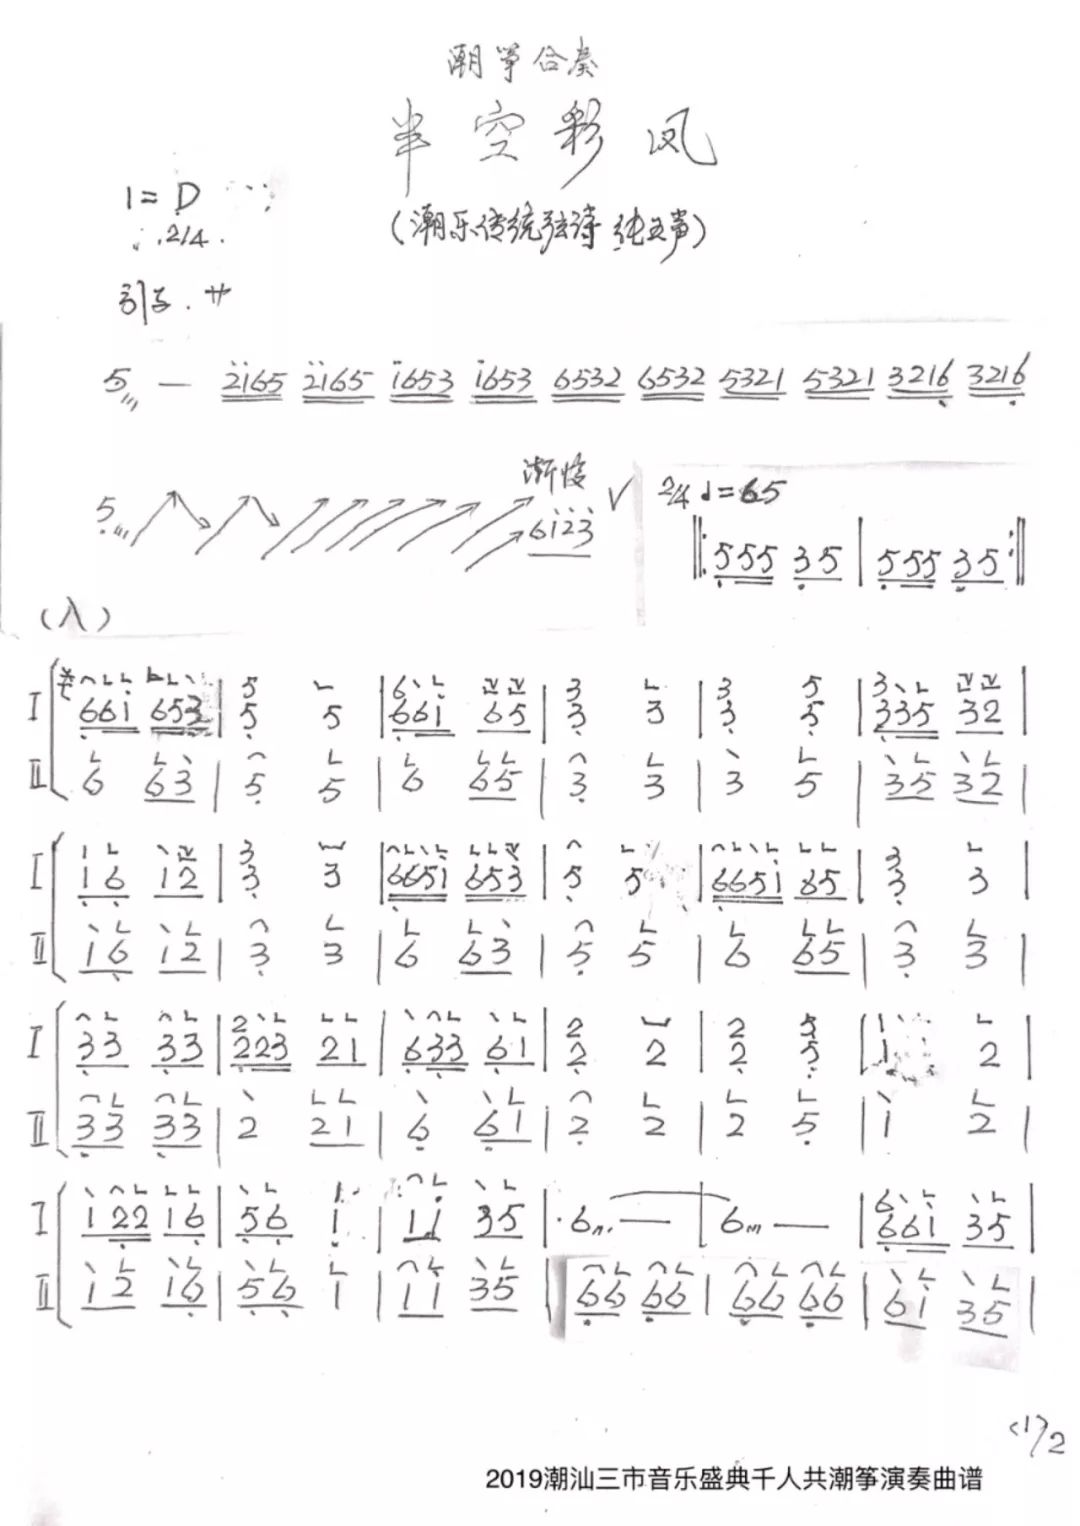 潮筝合奏
半空彩凤
1=D
2/4
(潮乐传统弦诗 纯五声)
引子. 廾
5 — 2165 2165 1653 1653 6532 6532 5321 5321 3216 3216
渐慢
5 6123 √ 2/4 ♩=65
‖: 555 35 | 555 35 :‖
(八)
I 661 653 | 5 5 | 661 65 | 3 3 | 3 5 | 335 32 |
II 6 63 | 5 5 | 6 65 | 3 3 | 3 5 | 35 32 |
I 16 12 | 3 3 | 6651 653 | 5 5 | 6651 65 | 3 3 |
II 16 12 | 3 3 | 6 63 | 5 5 | 6 65 | 3 3 |
I 33 33 | 223 21 | 633 61 | 2 2 | 2 5 | 1 2 |
II 33 33 | 2 21 | 6 61 | 2 2 | 2 5 | 1 2 |
I 122 16 | 56 1 | 11 35 | 6 — | 6 — | 661 35 |
II 12 16 | 56 1 | 11 35 | 66 66 | 66 66 | 61 35 |
<1>/2
2019潮汕三市音乐盛典千人共潮筝演奏曲谱